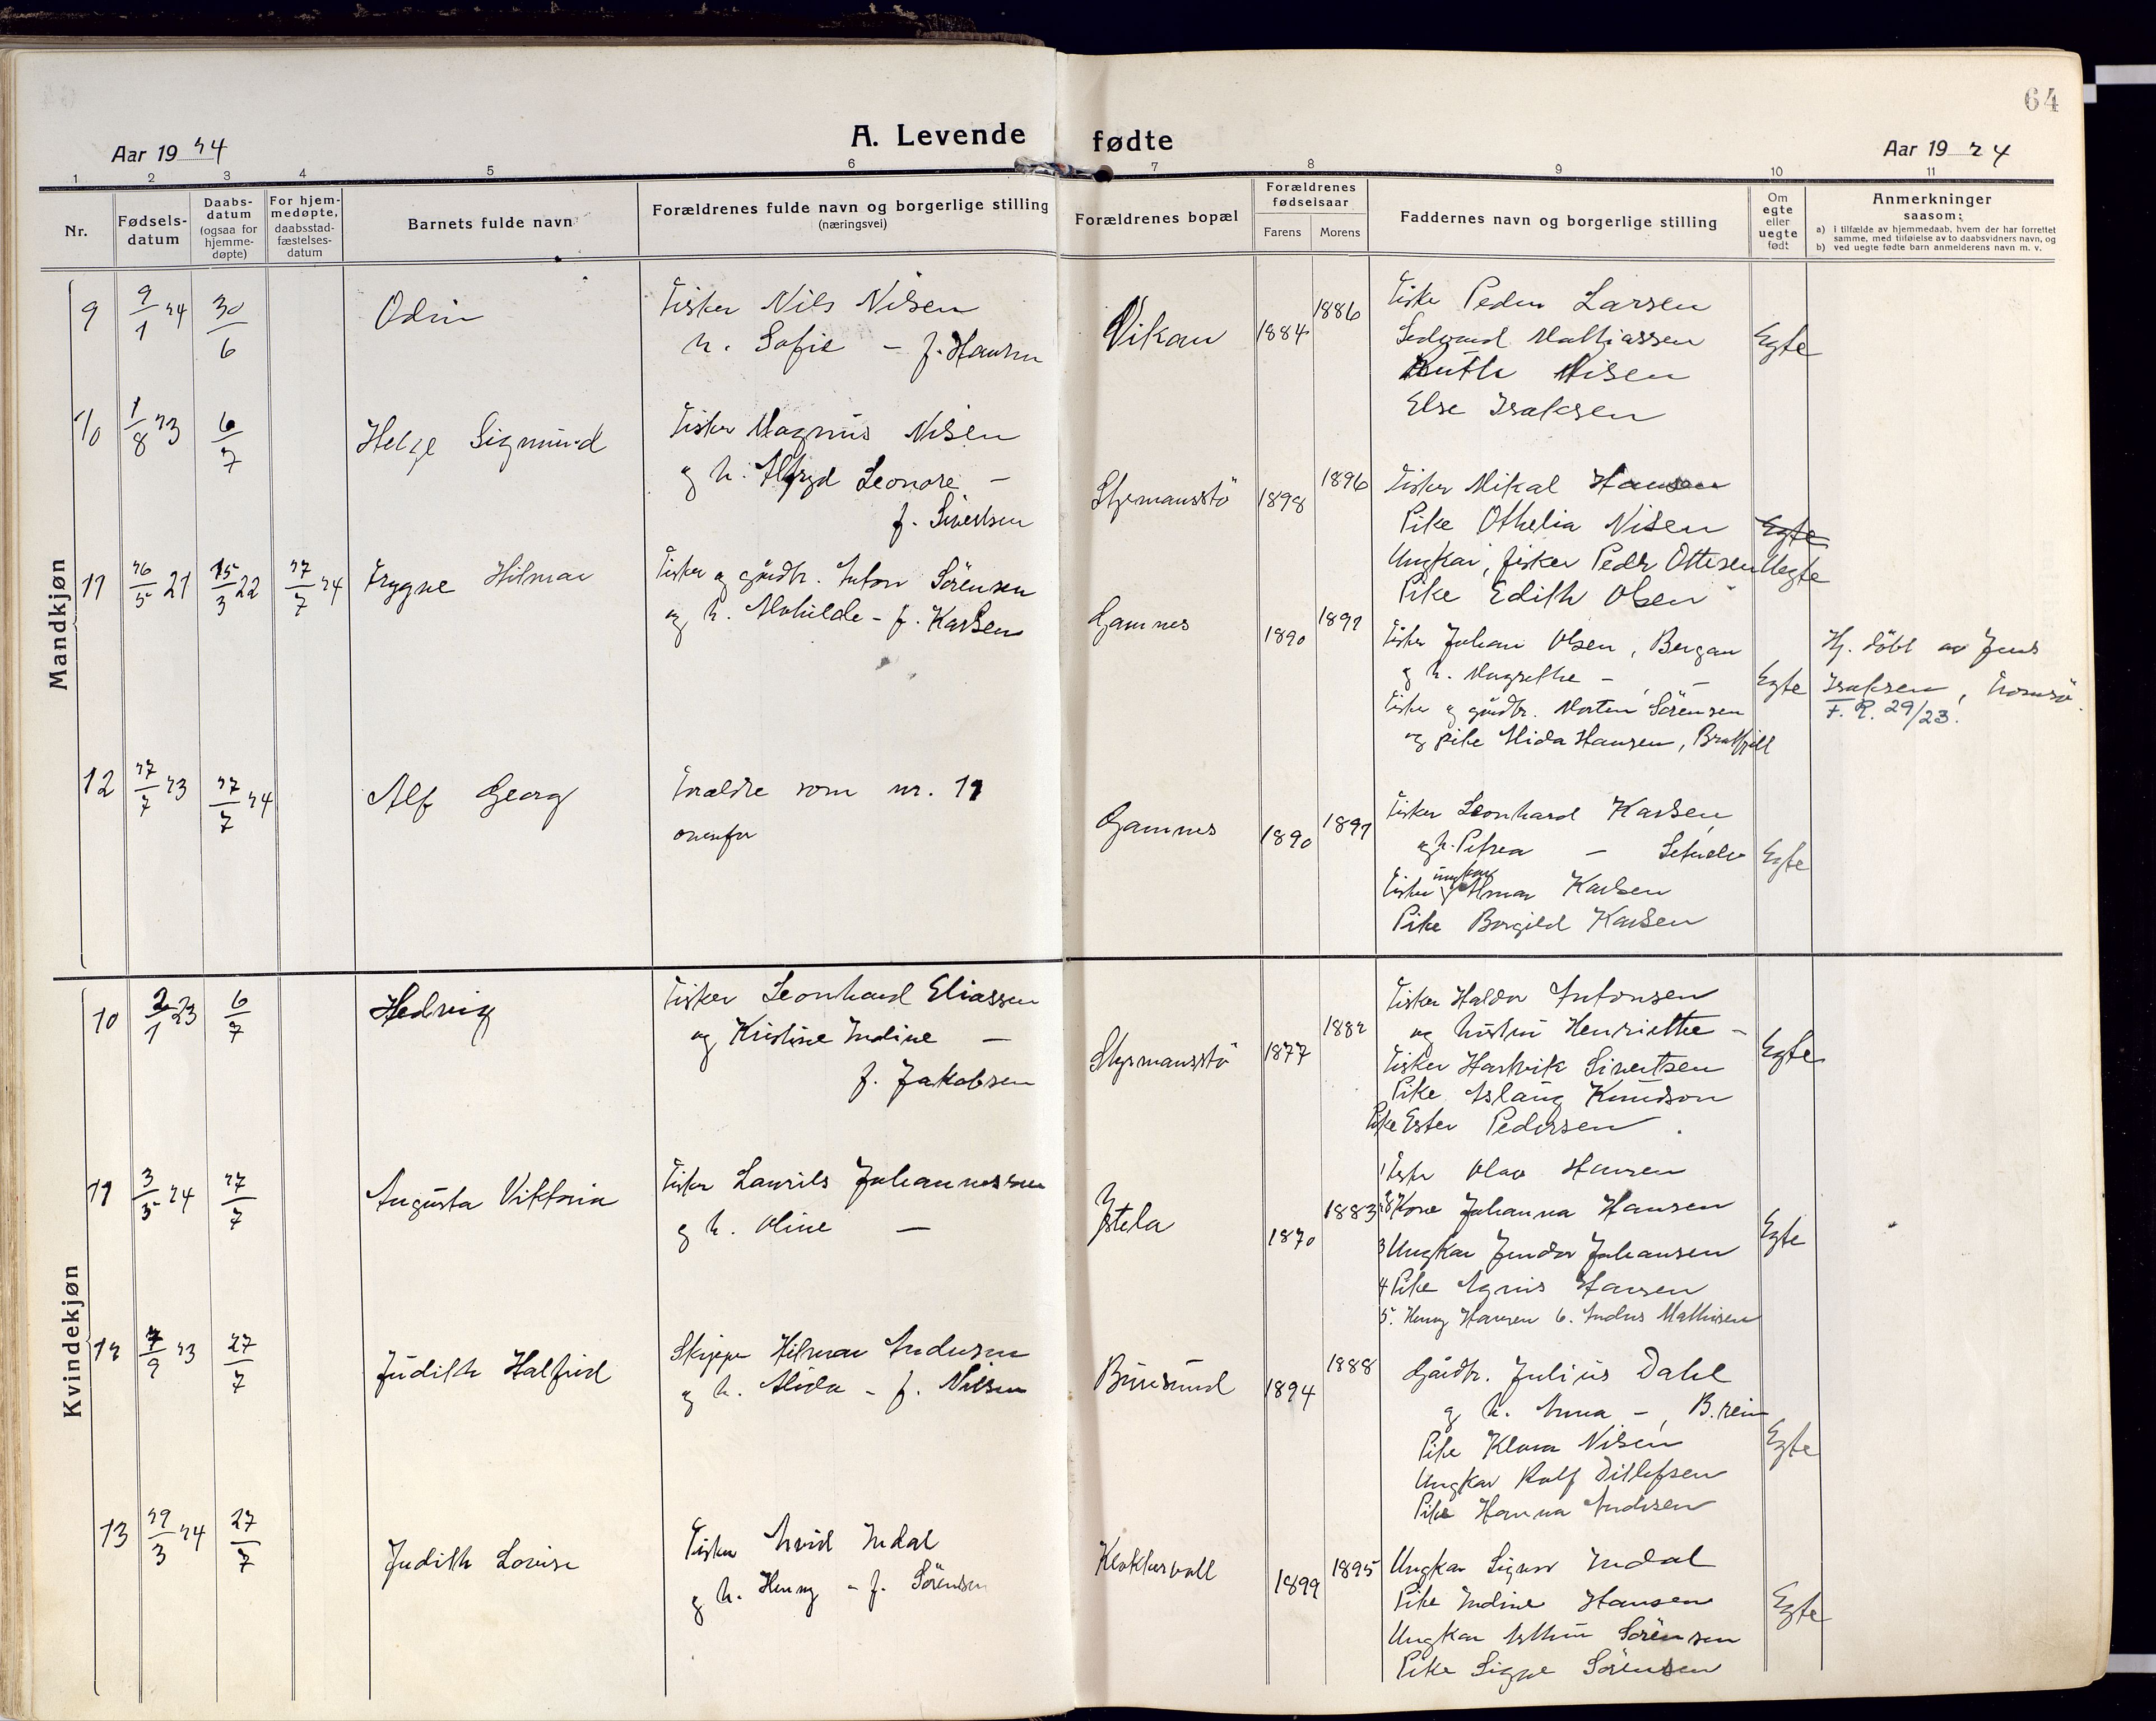 64
A. Levende fødte
Aar 1924
Aar 1924
1 2 3 4 5 6 7 8 9 10 11
Nr.
Fødsels-
datum
Daabs-
datum
(ogsaa for
hjemme-
døpte)
For hjem-
medøpte,
daabsstad-
fæstelses-
datum
Barnets fulde navn
Forældrenes fulde navn og borgerlige stilling
(næringsvei)
Forældrenes bopæl
Forældrenes
fødselsaar
Farens Morens
Faddernes navn og borgerlige stilling
Om
egte
eller
uegte
født
Anmerkninger
saasom:
a) i tilfælde av hjemmedaab, hvem der har forrettet
samme, med tilføielse av to daabsvidners navn, og
b) ved uegte fødte barn anmelderens navn m. v.
Mandkjøn
9 9/1 24 30/6 Odin
Fisker Nils Nilsen
h. Sofie – f. Hansen
Vikan 1884 1886
Fisker Peder Larsen
Sedvard Mathiassen
Ruth Nilsen
Else Isaksen
Egte
10 1/8 23 6/7 Helge Sigmund
Fisker Magnus Nilsen
og h. Alfryd Leonore –
f. Sivertsen
Styrmansstö 1898 1896
Fisker Mikal Hansen
Pike Othelia Nilsen
Ungkar, fisker Peder Ottesen
Pike Edith Olsen
Egte
Uegte
11 26/5 21 15/3 22 27/7 24 Trygve Hilmar
Fisker og gårdbr. Anton Sörensen
og h. Mathilde – f. Karlsen
Gamnes 1890 1891
Fisker Johan Olsen, Bergan
og h. Margrethe – , –
Fisker og gårdbr. Morten Sörensen
og pike Alida Hansen, Bratfjell
Egte
Hj. döbt av Jens
Isaksen, Tromsö.
F. R. 29/23.
12 27/7 23 27/7 24 Alf Georg
Forældre som nr. 11
ovenfor
Gamnes 1890 1891
Fisker Leonhard Karlsen,
og h. Petrea –
Fisker ungkar Almar Karlsen
Pike Borgild Karlsen
Egte
Kvindekjøn
10 2/1 23 6/7 Hedvig
Fisker Leonhard Eliassen
og Kristine Indine –
f. Jakobsen
Styrmansstö 1877 1882
Fisker Haldor Antonsen
og hustru Henriette –
Fisker Hartvik Sivertsen
Pike Aslaug Knudson
Pike Ester Pedersen
Egte
11 3/5 24 27/7 Augusta Viktoria
Fisker Laurits Johannessen
og h. Oline –
1870 1883
1 Fisker Olav Hansen
2 Kone Johanna Hansen
3 Ungkar Johansen
4 Pike Agnis Hansen
5. Henry Hansen 6. Andreas Mathisen
Egte
12 7/9 23 27/7 Judith Halfrid
Skipper Hilmar Andersen
og h. Alida – f. Nilsen
Buresund 1894 1888
Gårdbr. Julius Dahl
og h. Anna –, B. rein
Pike Klara Nilsen
Ungkar Rolf Ditlefsen
Pike Hanna Andersen
Egte
13 29/3 24 27/7 Judith Lovise
Fisker Arvid Indal
og h. Henny – f. Sörensen
Klokkervoll 1899 1895
Ungkar Sigvor Indal
Pike Indine Hansen
Ungkar Arthur Sörensen
Pike Signe Sörensen
Egte